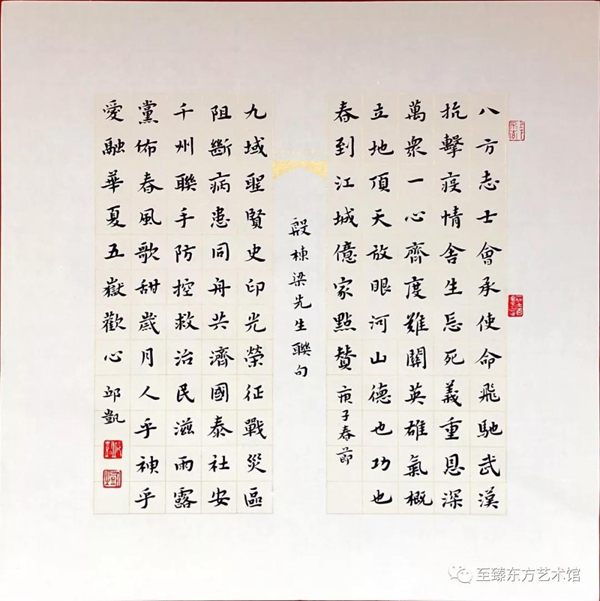 八方志士會承使命飛馳武漢
抗擊疫情舍生忘死義重恩深
萬衆一心齊度難關英雄氣概
立地頂天放眼河山德也功也
春到江城億家點贊 庚子春節
殷棟梁先生聯句
九域聖賢史印光榮征戰災區
阻斷病患同舟共濟國泰社安
千州聯手防控救治民滋雨露
黨佈春風歌甜歲月人乎神乎
愛融華夏五嶽歡心 邱凱
至臻东方艺术馆